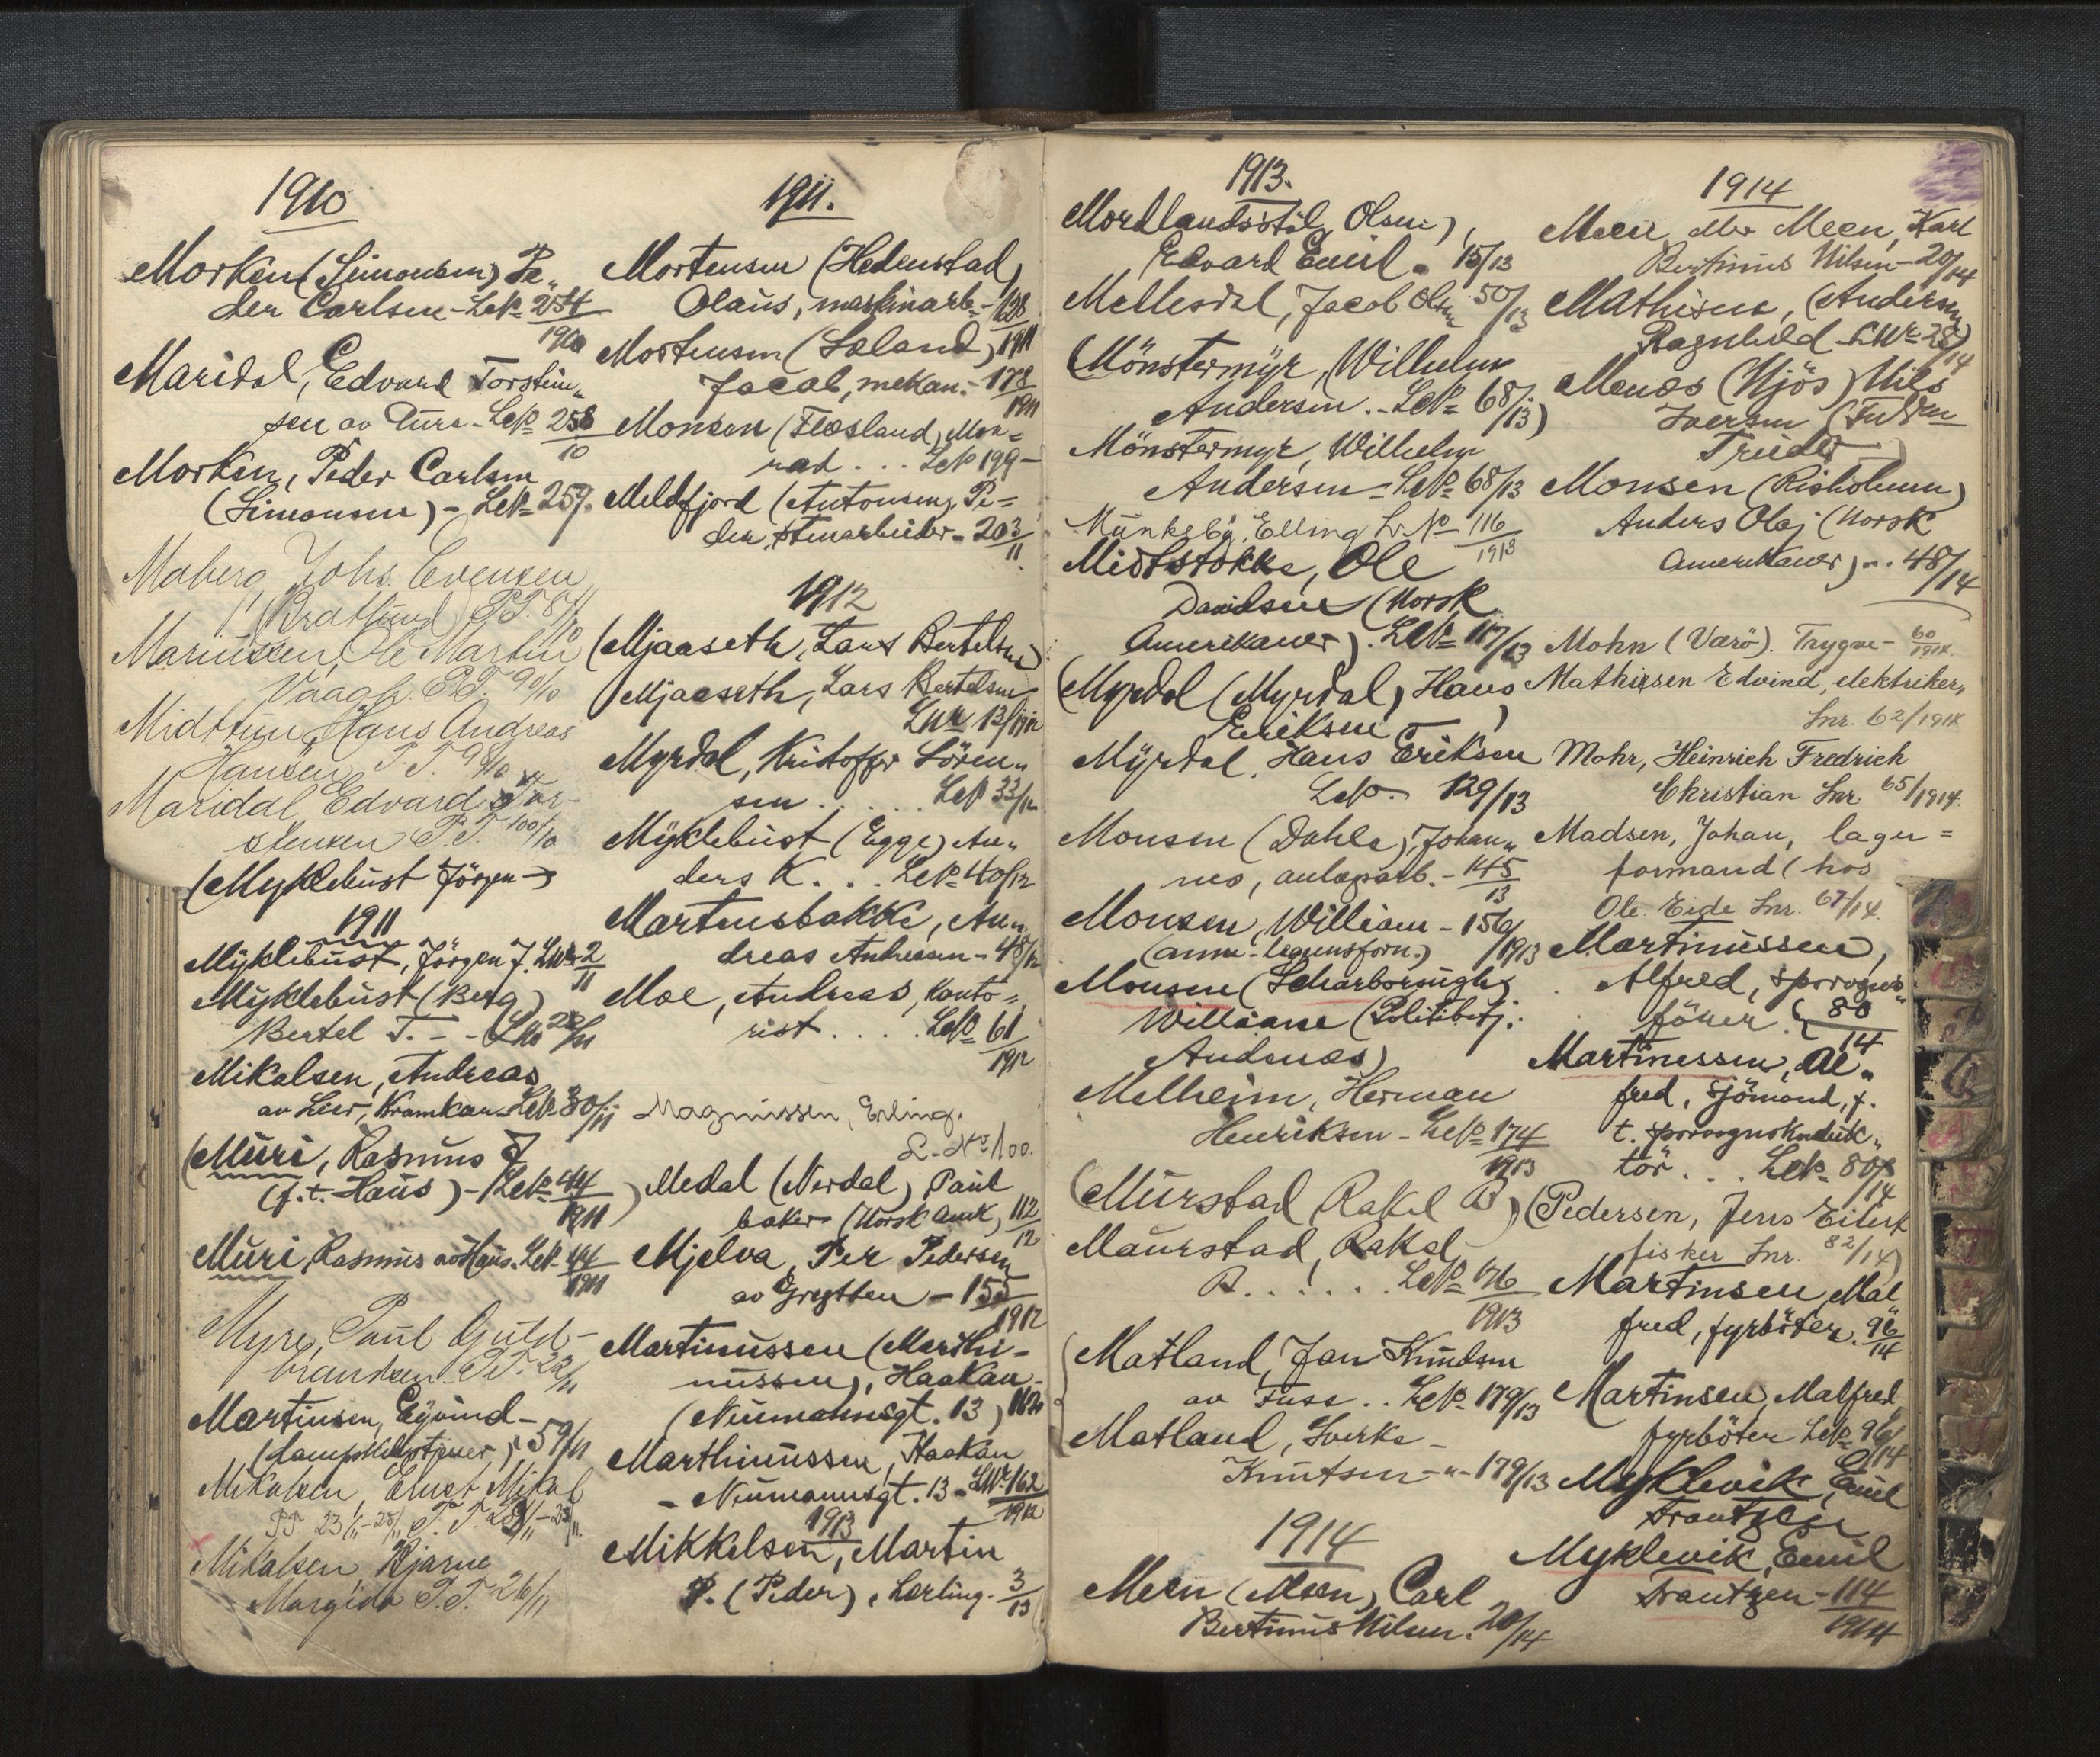 1910
Morken (Simonsen) Pe„
der Carlsen - LNo 254/1910
Maridal, Edvard Torstein„
sen av Ture - LNo 258/10
Morken, Peder Carlsen
(Simonsen) - LNo 259.
Moberg Johs. Evensen
(Bratlund) P.T. 87/10
Mariussen, Ole Martin
Vaagh. P.T. 90/10
Midttun Hans Andreas
Hansen P.T. 98/10
Maridal Edvard Tor-
stensen P.T. 100/10
(Myklebust Jörgen
1911
Myklebust, Jörgen J. LNr 2/11
Myklebust (Berg)
Bertel T. - - LNo 28/11
Mikalsen, Andreas
av Lier, Kramkar LNo 30/11
(Muri, Rasmus J
(f. t. Haus) - LNo 44/1911)
Muri, Rasmus av Haus. LNo 44/1911
Myre, Paul Guld-
brandsen P.T. 22/11
Martinsen, Eyvind -
(damps), 59/11
Mikalsen, Ernst Mikal
P.T. 23/11 - 28/11 P.T.
Mikalsen Bjarne
Margido P.T. 26/11
1911.
Mortensen (Hedenstad)
Olaus, maskinarb. - 128/1911
Mortensen (Soland)
Jacob, mekan. - 178/1911
Monsen (Flesland) Mon=
rad . . . LNo 199 -
Meldfjord (Antonsen, Pe=
der, stenarbeider - 203/11.
1912
(Mjaaseth, Lars Bertelsen)
Mjaaseth, Lars Bertelsen
LNr 13/1912
Myrdal, Kristoffer Sören„
sen . . . . . LNo 33/12
Myklebust (Egge) An„
ders K. . . LNo 40/12
Martensbakke, An„
dreas Andreassen - 48/12
Moe, Andreas, Konto=
rist . . . . LNo 61/1912
Magnussen, Erling.
L-No 100.
Medal (Nerdal) Paul
baker (Norsk Amrk) 112/12
Mjelva, Per Pedersen
av Grytten - 155/1912
Martinussen (Marthi-
nussen), Haakan -
(Neumannsgt. 13) 162
Marthinussen, Haakan
- Neumannsgt. 13 - LNr 162/1912
1913
Mikkelsen, Martin
P. (Peder), Lærling. 3/13
1913.
Mordlandsstöl, Olsen),
Edvard Emil. 15/13
Mellesdal, Jacob Olsen 50/13
(Mönstermyr, Wilhelm
Andersen. - LNo 68/13)
Mönstermyr, Wilhelm
Andersen - LNo 68/13
Munksbö, Elling L. No 116/1913
Midtstokke, Ole
Davidsen (Norsk
Amerikaner). LNo 117/13
(Myrdol (Myrdal) Hans
Eriksen)
Myrdal. Hans Eriksen
LNo. 129/13
Monsen (Dahle), Johan„
nes, anlægsarb. - 145/13
Monsen, William - 156/1913
Monsen (Scharborough)
William (Politibetj.
Andenæs)
Melheim, Herman
Henriksen - LNo 174/1913
(Murstad Rakel B)
Maurstad, Rakel
B. . . . . LNo 176/1913
Matland, Jan Knudsen
av Fuse . . LNo 179/13
Matland, Sverke -
Knutsen - „ - 179/13
1914
Meen (Moen) Carl
Bertinus Nilsen. 20/14
1914
Moen eller Meen, Karl
Bertinus Nilsen - 20/14
Mathisen, (Andersen)
Ragnhild LNr 28/14
Menæs (Njös) Nils
Iversen
Monsen (Risholmen)
Anders Olaj (Norsk
Amerikaner) „. 48/14
Mohn (Værö). Trygve - 60/1914.
Mathiesen Edvind, elektriker,
Lnr. 62/1914
Mohr, Heinrich Fredrich
Christian Lnr. 65/1914.
Madsen, Johan, lager=
formand (hos
Ole Eide Lnr. 67/14.
Martinussen,
Alfred, sporvogns„
förer. 80/14
Martinussen, Al„
fred, sjömand, f.
t. sporvognskonduk„
tör . . . LNo 80/14
(Pedersen, Jens Eilert
fisker Lnr. 82/14)
Martinsen, Mal„
fred, fyrböter. 96/14
Martinsen, Malfred,
fyrböter LNo 96/14
Myklevik, Emil
Frantzen
Myklevik, Emil
Frantzen - 114/1914